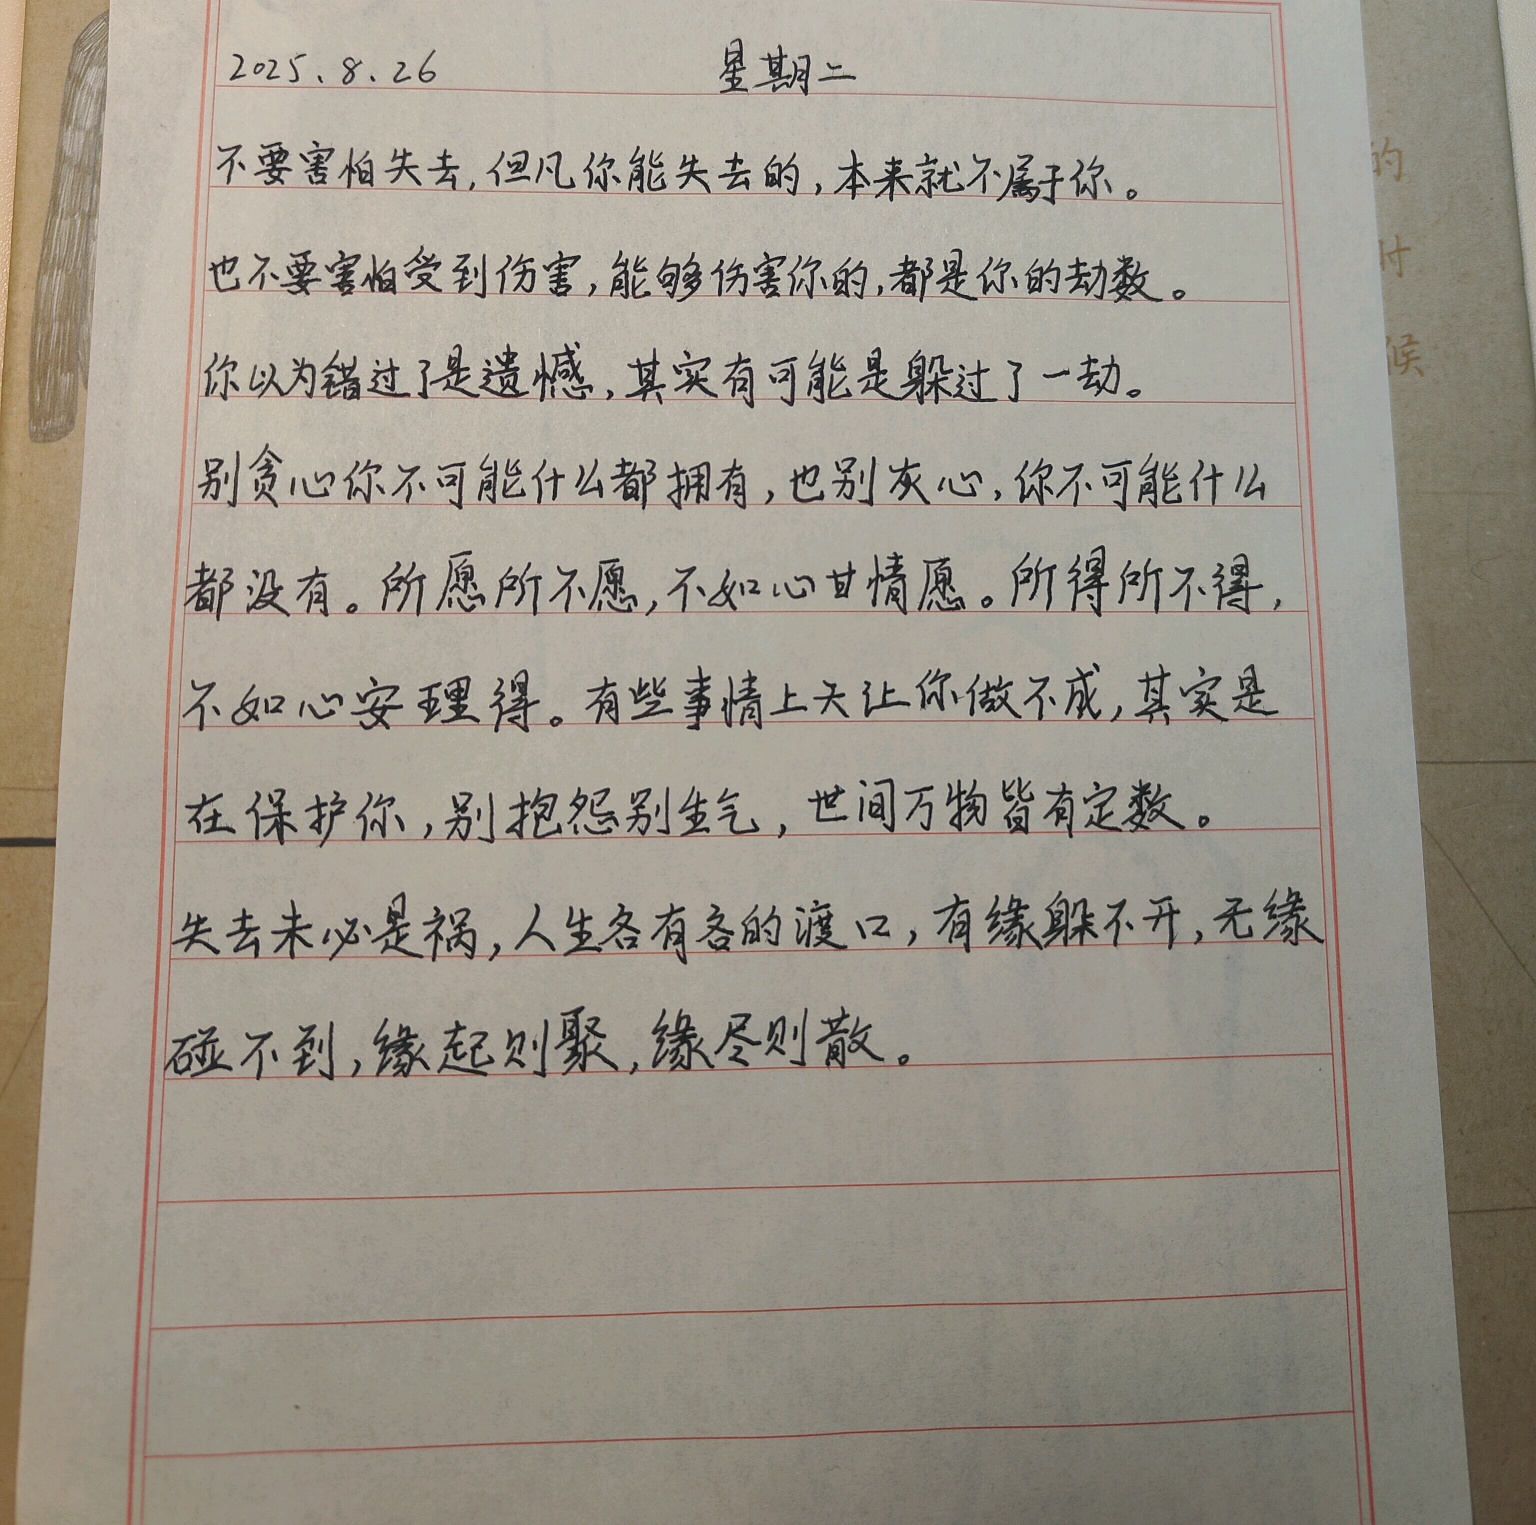 2025.8.26 星期二
不要害怕失去,但凡你能失去的,本来就不属于你。
也不要害怕受到伤害,能够伤害你的,都是你的劫数。
你以为错过了是遗憾,其实有可能是躲过了一劫。
别贪心你不可能什么都拥有,也别灰心,你不可能什么
都没有。所愿所不愿,不如心甘情愿。所得所不得,
不如心安理得。有些事情上天让你做不成,其实是
在保护你,别抱怨别生气,世间万物皆有定数。
失去未必是祸,人生各有各的渡口,有缘躲不开,无缘
碰不到,缘起则聚,缘尽则散。
的
付
候